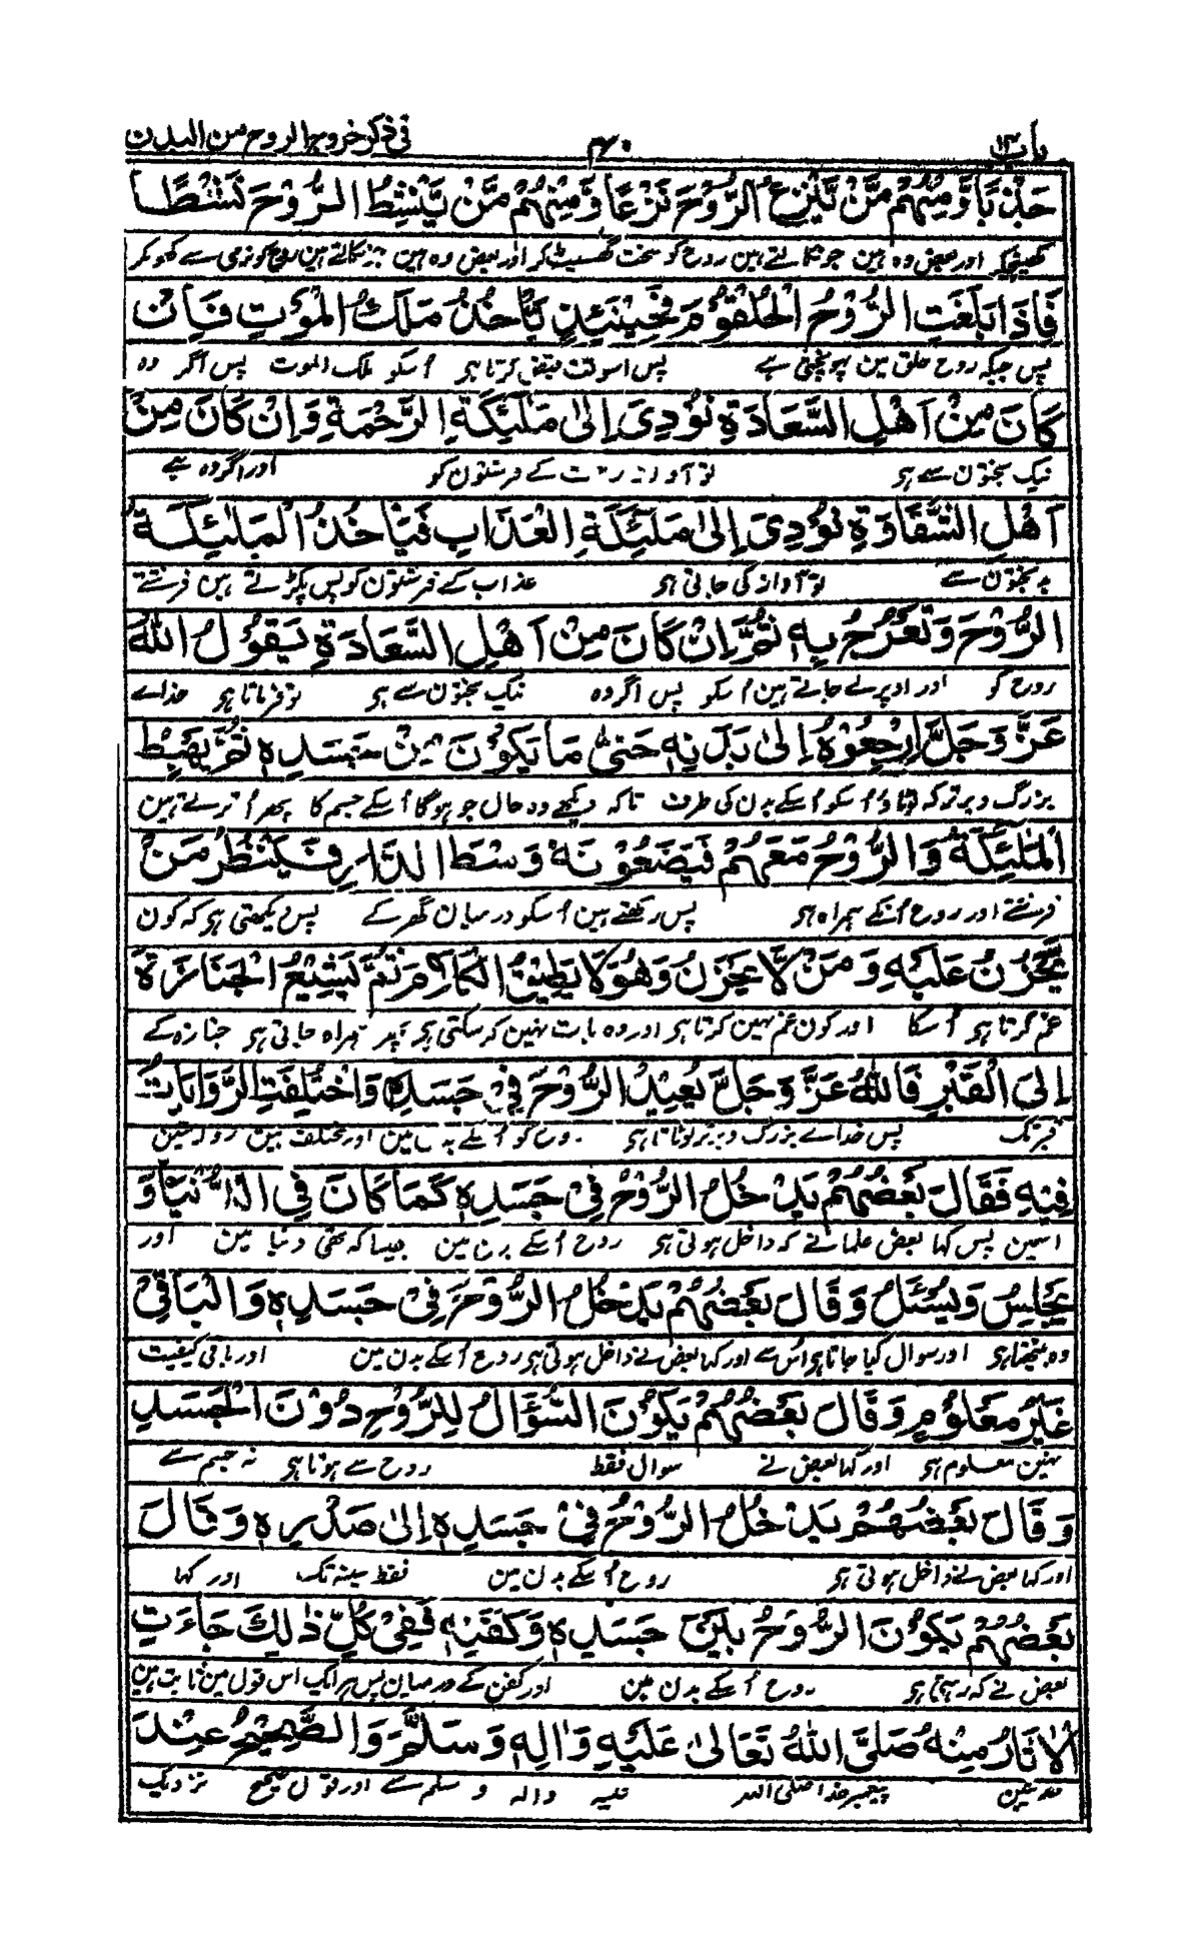 باب ۱۳ ۴۰ فی ذکر خروج الروح من البدن
جَذْبًا وَّمِنْهُمْ مَّنْ يَّنْزِعُ الرُّوْحَ نَزْعًا وَّمِنْهُمْ مَّنْ يَّنْشِطُ الرُّوْحَ نَشْطًا
کھینچکر اور بعض وہ ہین جو نکالتے ہین روح کو سخت گھسیٹ کر اور بعض وہ ہین جو نکالتے ہین روح کو نرمی سے کھولکر
فَاِذَا بَلَغَتِ الرُّوْحُ الْحُلْقُوْمَ فَحِيْنَئِذٍ يَّاْخُذُ مَلَكُ الْمَوْتِ فَاِنْ
پس جبکہ روح حلق مین پہونچتی ہے پس اسوقت قبض کرتا ہو اُسکو ملک الموت پس اگر وہ
كَانَ مِنْ اَهْلِ السَّعَادَةِ نُوْدِيَ اِلٰى مَلٰٓئِكَةِ الرَّحْمَةِ وَاِنْ كَانَ مِنْ
نیک بختون سے ہو تو آواز رحمت کے فرشتون کو اور اگر وہ ہے
اَهْلِ الشَّقَاوَةِ نُوْدِيَ اِلٰى مَلٰٓئِكَةِ الْعَذَابِ فَيَاْخُذُ الْمَلٰٓئِكَةُ
بدبختون سے تو آواز کی جاتی ہو عذاب کے فرشتون کو پس پکڑتے ہین فرشتے
الرُّوْحَ وَتَعْرُجُ بِهٖ ثُمَّ اِنْ كَانَ مِنْ اَهْلِ السَّعَادَةِ يَقُوْلُ اللّٰهُ
روح کو اور اوپر لے جاتے ہین اُسکو پس اگر وہ نیک بختون سے ہو تو فرماتا ہو خداے
عَزَّ وَجَلَّ اِرْجِعُوْهُ اِلٰى بَدَنِهٖ حَتّٰى مَا يَكُوْنَ مِنْ جَسَدِهٖ ثُمَّ يَهْبِطُ
بزرگ و برتر کہ لوٹاؤ اُسکو اُسکے بدن کی طرف تاکہ دیکھے وہ حال جو ہوگا اُسکے جسم کا پھر اُترتے ہین
الْمَلٰٓئِكَةُ وَالرُّوْحُ مَعَهُمْ فَيَضَعُوْنَهٗ وَسْطَ الدَّارِ فَيَنْظُرُ مَنْ
فرشتے اور روح اُنکے ہمراہ ہو پس رکھتے ہین اُسکو درمیان گھر کے پس دیکھتی ہو کہ کون
يَّحْزُنُ عَلَيْهِ وَمَنْ لَّا يَحْزَنُ وَهُوَ لَا يَطِيْقُ الْكَلَامَ ثُمَّ يُشَيِّعُ الْجَنَازَةَ
غم کرتا ہو اُسکا اور کون غم نہین کرتا ہو اور وہ بات نہین کر سکتی ہو پھر ہمراہ جاتی ہو جنازہ کے
اِلَى الْقَبْرِ فَاللّٰهُ عَزَّ وَجَلَّ يُعِيْدُ الرُّوْحَ فِيْ جَسَدِهٖ وَاخْتَلَفَتِ الرِّوَايَاتُ
قبر تک پس خداے بزرگ و برتر لوٹاتا ہو روح کو اُسکے بدن مین اور مختلف ہین روایتین
فِيْهِ فَقَالَ بَعْضُهُمْ يَدْخُلُ الرُّوْحُ فِيْ جَسَدِهٖ كَمَا كَانَ فِي الدُّنْيَا وَ
اسمین پس کہا بعض علما نے کہ داخل ہوتی ہو روح اُسکے بدن مین جیسا کہ تھی دنیا مین اور
يَجْلِسُ وَيُسْئَلُ وَقَالَ بَعْضُهُمْ يَدْخُلُ الرُّوْحُ فِيْ جَسَدِهٖ وَالْبَاقِيْ
وہ بیٹھتا ہو اور سوال کیا جاتا ہو اُس سے اور کہا بعض نے داخل ہوتی ہو روح اُسکے بدن مین اور باقی کیفیت
غَيْرُ مَعْلُوْمٍ وَقَالَ بَعْضُهُمْ يَكُوْنُ السُّؤَالُ لِلرُّوْحِ دُوْنَ الْجَسَدِ
نہین معلوم ہو اور کہا بعض نے سوال فقط روح سے ہوتا ہو نہ جسم سے
وَقَالَ بَعْضُهُمْ يَدْخُلُ الرُّوْحُ فِيْ جَسَدِهٖ اِلٰى صَدْرِهٖ وَقَالَ
اور کہا بعض نے داخل ہوتی ہو روح اُسکے بدن مین فقط سینہ تک اور کہا
بَعْضُهُمْ يَكُوْنُ الرُّوْحُ بَيْنَ جَسَدِهٖ وَكَفَنِهٖ فَفِيْ كُلِّ ذٰلِكَ جَاءَتِ
بعض نے کہ رہتی ہو روح اُسکے بدن مین اور کفن کے درمیان پس ہر ایک اس قول مین ثابت ہین
الْاٰثَارُ مِنْهُ صَلَّى اللّٰهُ تَعَالٰى عَلَيْهِ وَاٰلِهٖ وَسَلَّمَ وَالصَّحِيْحُ عِنْدَ
حدیثین پیغمبر خدا صلی اللہ علیہ وآلہ و سلم سے اور قول صحیح نزدیک